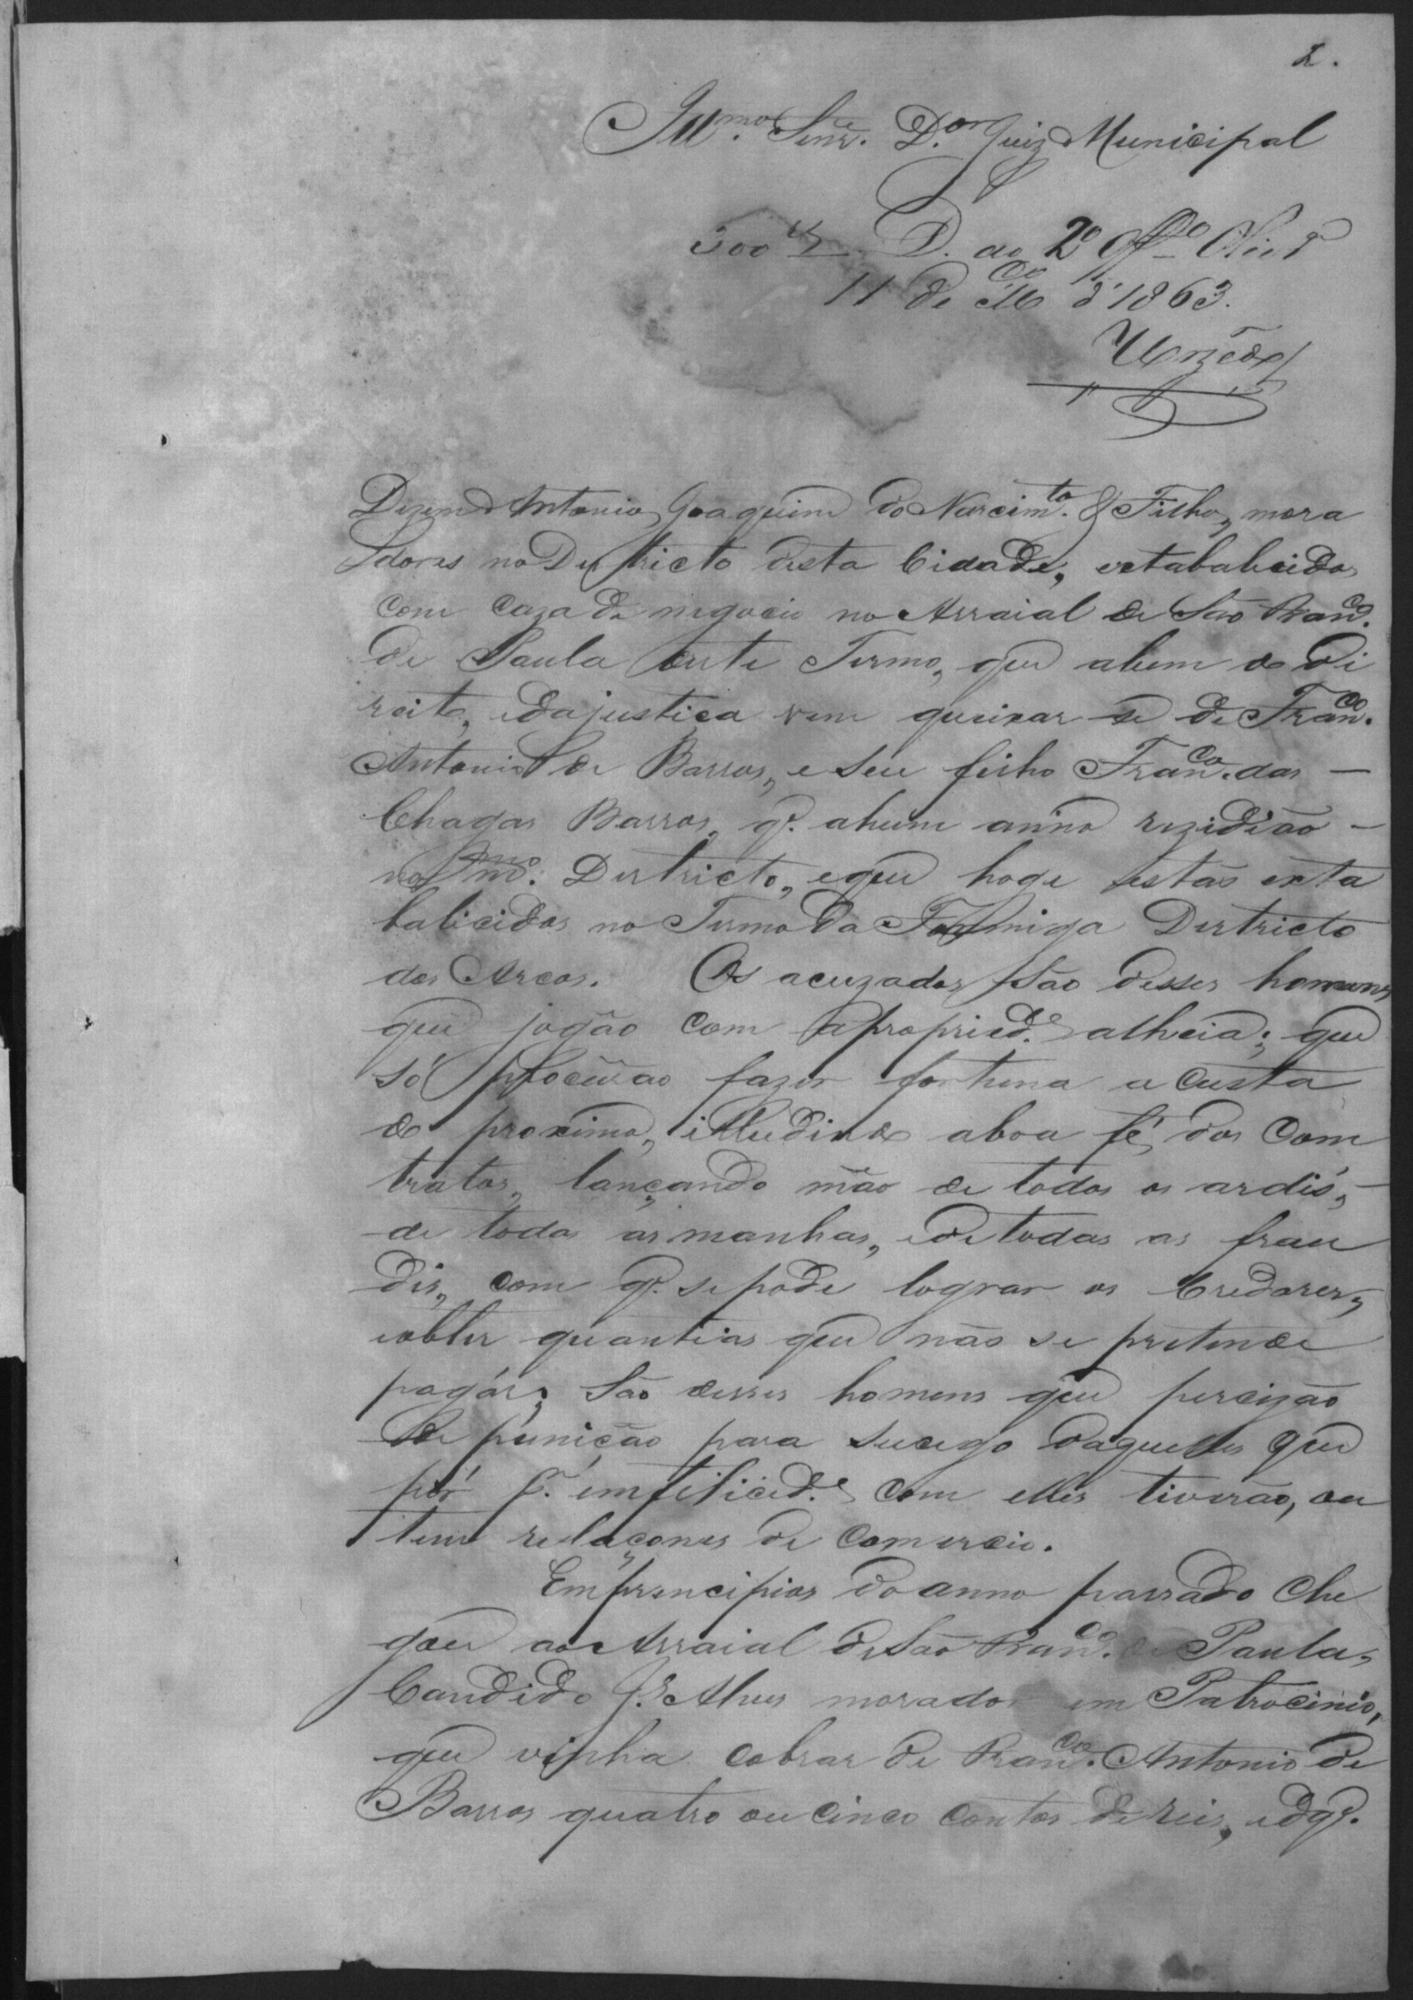 2.
Illmo. Senr. Dor. Juiz Municipal
300 rs D. ao 2º Offo
11 de Mço d'1863.
Dizem Antonio Joaquim do Nascimto. & Filho, mora
dores no Destricto desta Cidade, estabalecidos
com caza de negocio no Arraial de São Franco.
de Paula deste Termo, que abem do Di
reito, eda justiça vem queixar se de Franco.
Antonio de Barros, e seu filho Franco. das —
Chagas Barros, q̃. ahum anno rezidião —
no mmo. Destricto, eque hoge estão esta
balicidos no Termo da Formiga Destricto
dos Arcos. Os acuzados são desses homens
que jogão com apropriede. alheia; que
só procurão fazer fortuna a custa
do proximo, illudindo aboa fé dos Com
tratos, lançando mão de todos os ardís, —
de todas as manhas, ede todas as frau
des, com q̃. se pode lograr os Credores,
eobter quantias que não se pretende
pagár; são desses homens que percizão
de punição para sucego daquelles que
pór sa. emfelicide. com elles tiverão, ou
tem relaçones de Comercio.
Em prencipios do anno passado che
gou ao Arraial de São Franco. de Paula,
Candido Je. Alves morador em Patrocinio,
que vinha cobrar de Franco. Antonio de
Barros quatro ou cinco contos de reis, edq̃.